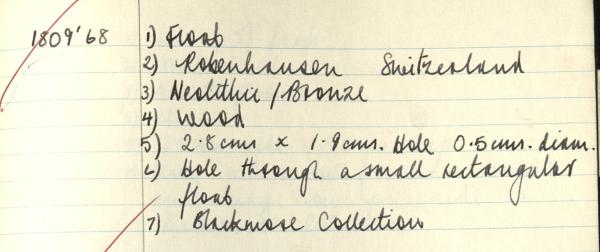 1809'68 1) Float
2) Robenhausen Switzerland
3) Neolithic / Bronze
4) Wood
5) 2.8cms x 1.9cms. Hole 0.5cms. diam.
6) Hole through a small rectangular
float
7) Blackmore Collection